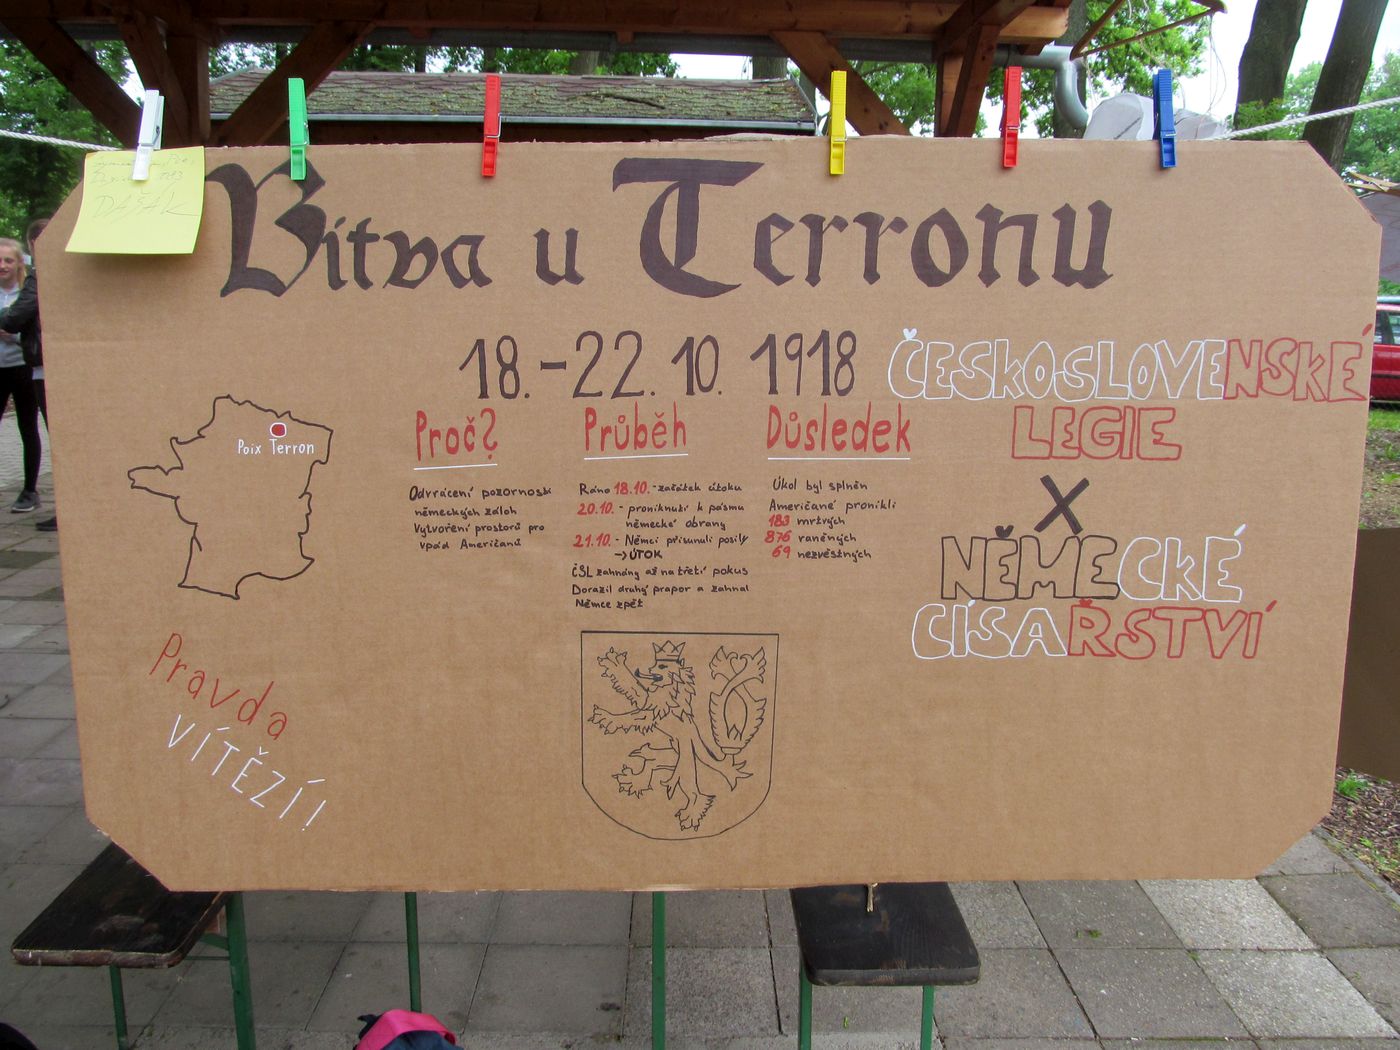 DAŠAK
Bitva u Terronu
18.-22.10. 1918
ČESKOSLOVENSKÉ
LEGIE
X
NĚMECKÉ
CÍSAŘSTVÍ
Poix Terron
Proč?
Odvrácení pozornosti
německých záloh
Vytvoření prostorů pro
vpád Američanů
Průběh
Ráno 18.10. - začátek útoku
20.10. - proniknutí k pásmu
německé obrany
21.10. - Němci přisunuli posily
→ ÚTOK
ČSL zahnány až na třetí pokus
Dorazil druhý prapor a zahnal
Němce zpět
Důsledek
Úkol byl splněn
Američané pronikli
183 mrtvých
876 raněných
69 nezvěstných
Pravda
VÍTĚZÍ!